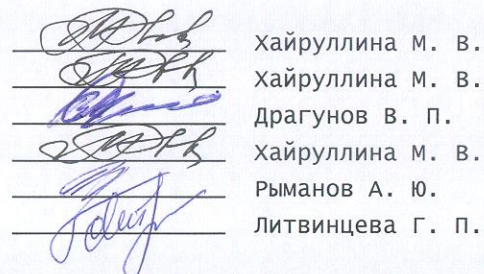 Хайруллина М. В.
Хайруллина М. В.
Драгунов В. П.
Хайруллина М. В.
Рыманов А. Ю.
Литвинцева Г. П.